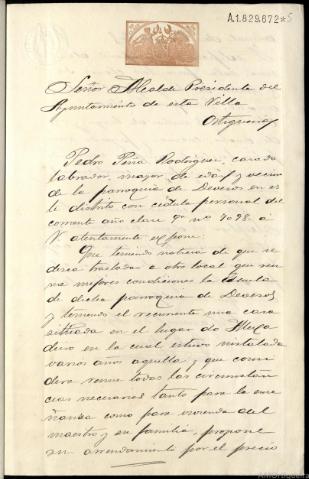 A.1.829.672*5
Señor Alcalde Presidente del
Ayuntamiento de esta Villa
Ortigueira
Pedro Peña Rodriguez, casado
labrador, mayor de edad y vecino
de la parroquia de Devesos en es
te distrito con cedula personal del
corriente año clase nº 7028. á
V atentamente expone:
Que teniendo noticia de que se
desea trasladar a otro local que reu
na mejores condiciones la Escuela
de dicha parroquia de Devesos
y teniendo el recurrente una casa
situada en el lugar do
en la cual estuvo instalada
varios años aquella y que consi
dera reune todas las circunstan
cias necesarias tanto para la ense
ñanza como para vivienda del
maestro y su familia, propone
su arrendamiento por el precio